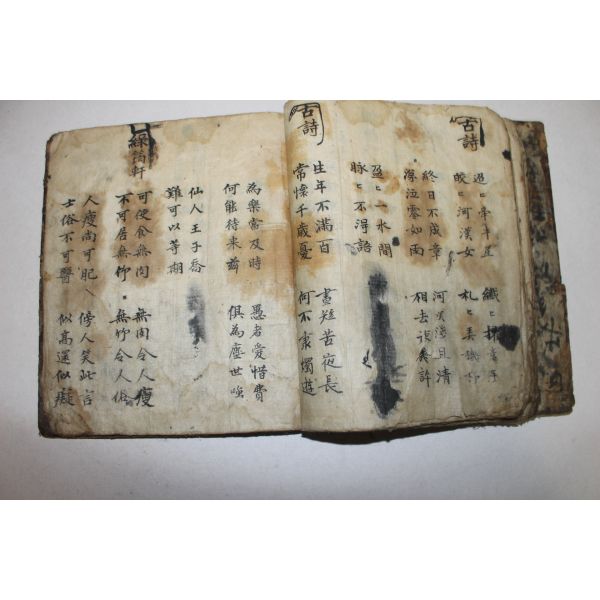 古詩
迢ヒ牽牛星
皎ヒ河漢女
纖ヒ擢素手
札ヒ弄機杼
終日不成章
涕泣零如雨
河漢淺且清
相去復幾許
盈ヒ一水間
脉ヒ不得語
古詩
生年不滿百
常懷千歲憂
晝短苦夜長
何不秉燭遊
為樂當及時
何能待来茲
愚者愛惜費
俱為塵世嗤
仙人王子喬
難可以等期
綠筠軒
可使食無肉
不可居無竹
無肉令人瘦
無竹令人俗
人瘦尚可肥
士俗不可醫
傍人笑此言
似高還似癡